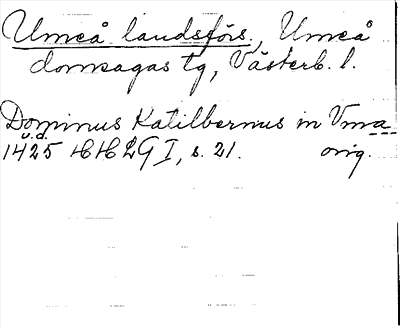 Umeå landsförs., Umeå
domsagas tg, Västerb. l.
Dominus Katilbernus in Vma
u.d.
1425 HH LG I, s. 21. orig.